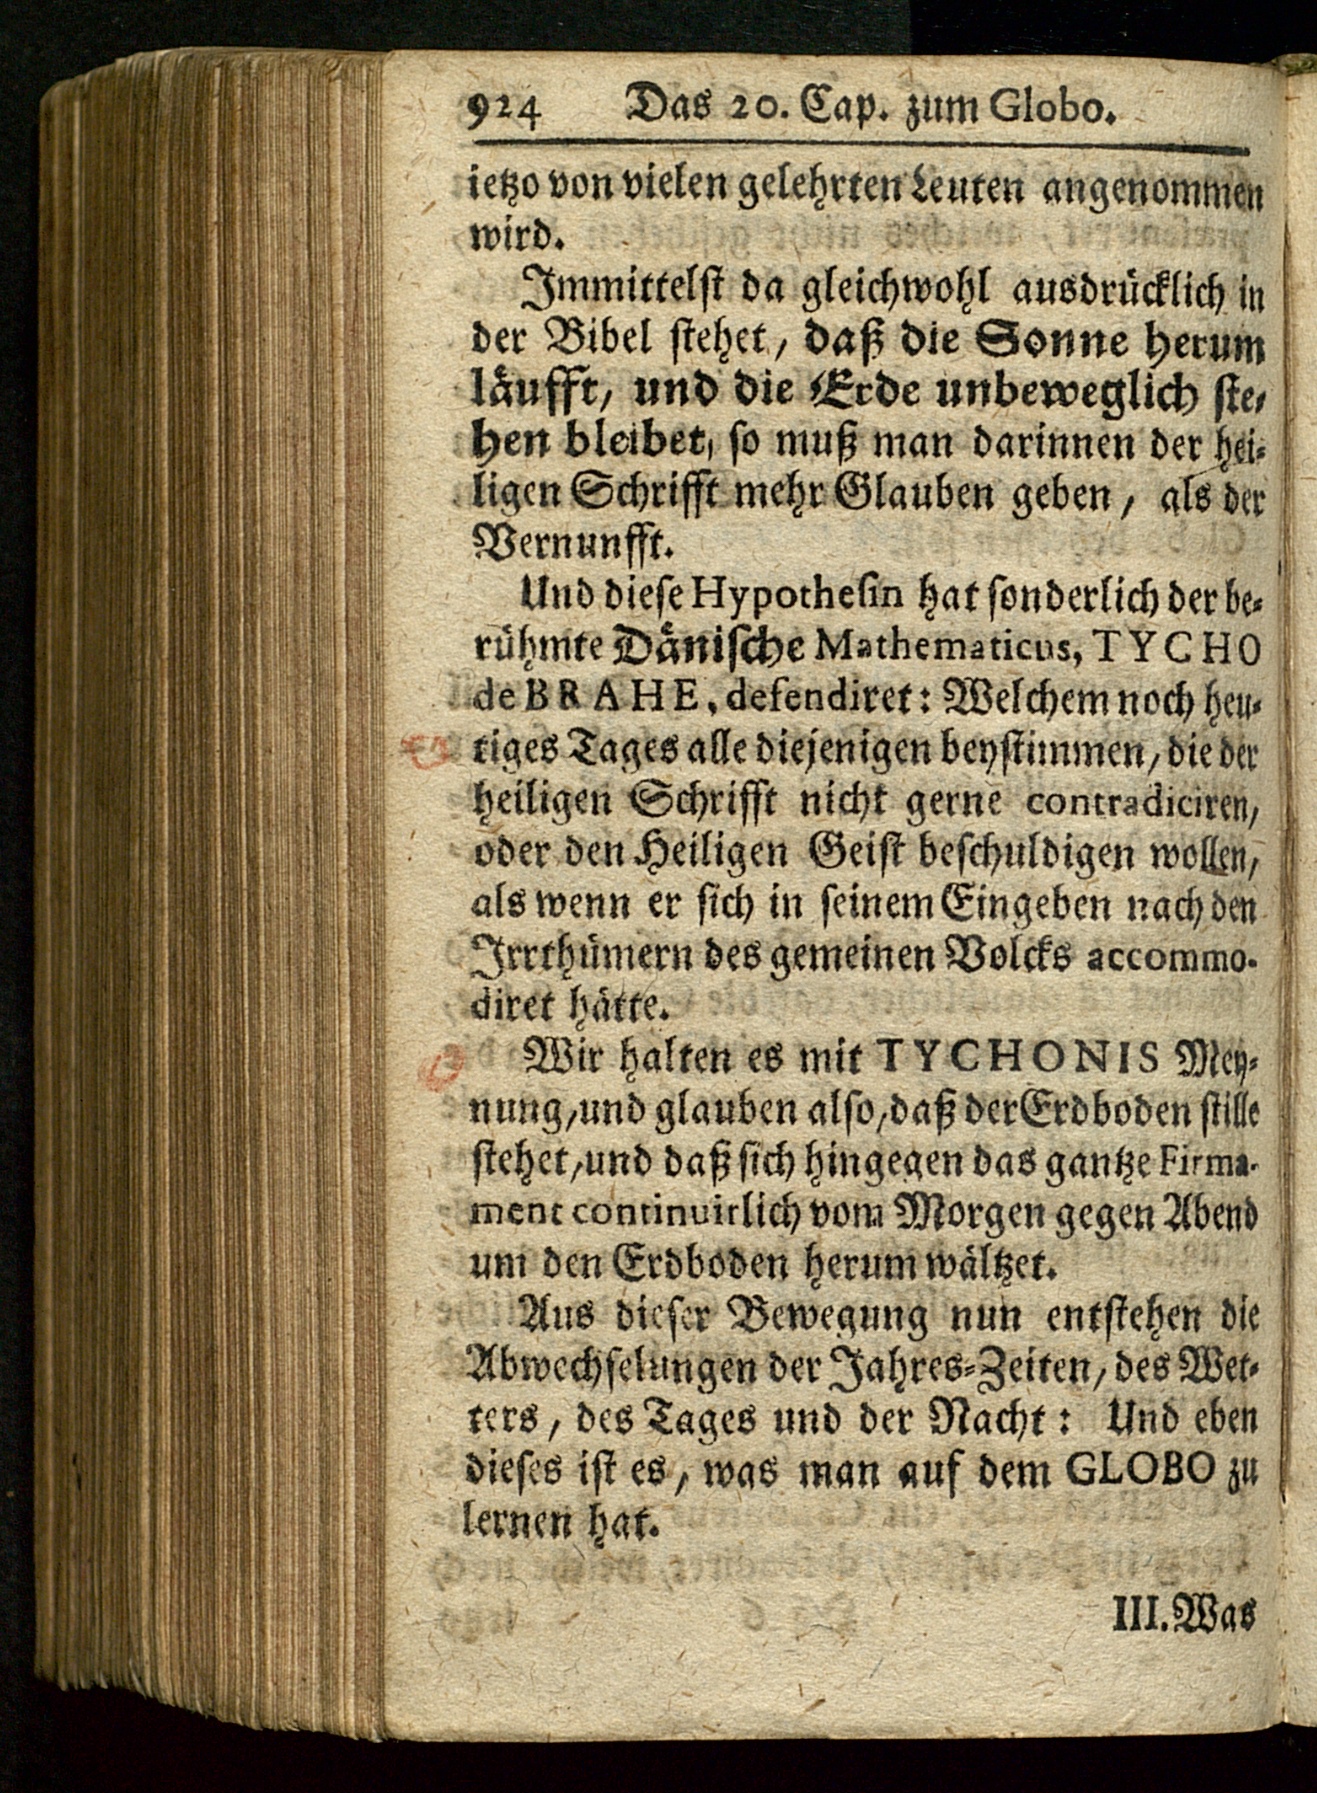 924 Das 20. Cap. zum Globo.
ietzo von vielen gelehrten Leuten angenommen
wird.
Immittelst da gleichwohl ausdrücklich in
der Bibel stehet, daß die Sonne herum
läufft, und die Erde unbeweglich ste-
hen bleibet, so muß man darinnen der hei-
ligen Schrifft mehr Glauben geben, als der
Vernunfft.
Und diese Hypothesin hat sonderlich der be-
rühmte Dänische Mathematicus, TYCHO
de BRAHE, defendiret: Welchem noch heu-
tiges Tages alle diejenigen beystimmen, die der
heiligen Schrifft nicht gerne contradiciren,
oder den Heiligen Geist beschuldigen wollen,
als wenn er sich in seinem Eingeben nach den
Irrthümern des gemeinen Volcks accommo-
diret hätte.
Wir halten es mit TYCHONIS Mey-
nung, und glauben also, daß der Erdboden stille
stehet, und daß sich hingegen das gantze Firma-
ment continuirlich vom Morgen gegen Abend
um den Erdboden herum wältzet.
Aus dieser Bewegung nun entstehen die
Abwechselungen der Jahres-Zeiten, des Wet-
ters, des Tages und der Nacht: Und eben
dieses ist es, was man auf dem GLOBO zu
lernen hat.
III. Was